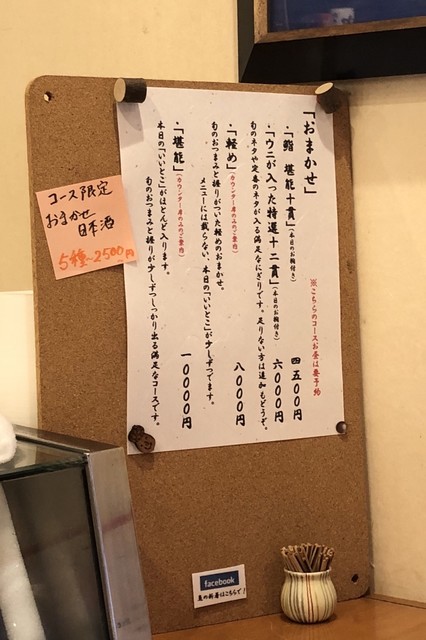 「おまかせ」
※こちらのコースお昼は要予約
・「鮨 堪能十貫」（本日のお椀付き） 四五〇〇円
・「ウニが入った特選十二貫」（本日のお椀付き） 六〇〇〇円
旬のネタや定番のネタが入る満足なにぎりです。足りない方は追加もどうぞ。
・「軽め」（カウンター席のみのご案内） 八〇〇〇円
旬のおつまみと握りがついた軽めのおまかせ。
メニューには載らない、本日の「いいとこ」が少しずつでます。
・「堪能」（カウンター席のみのご案内） 一〇〇〇〇円
本日の「いいとこ」がほとんど入ります。
旬のおつまみと握りが少しずつしっかり出る満足なコースです。
コース限定
おまかせ
日本酒
5種〜2500円
facebook
魚の新着はこちらで！